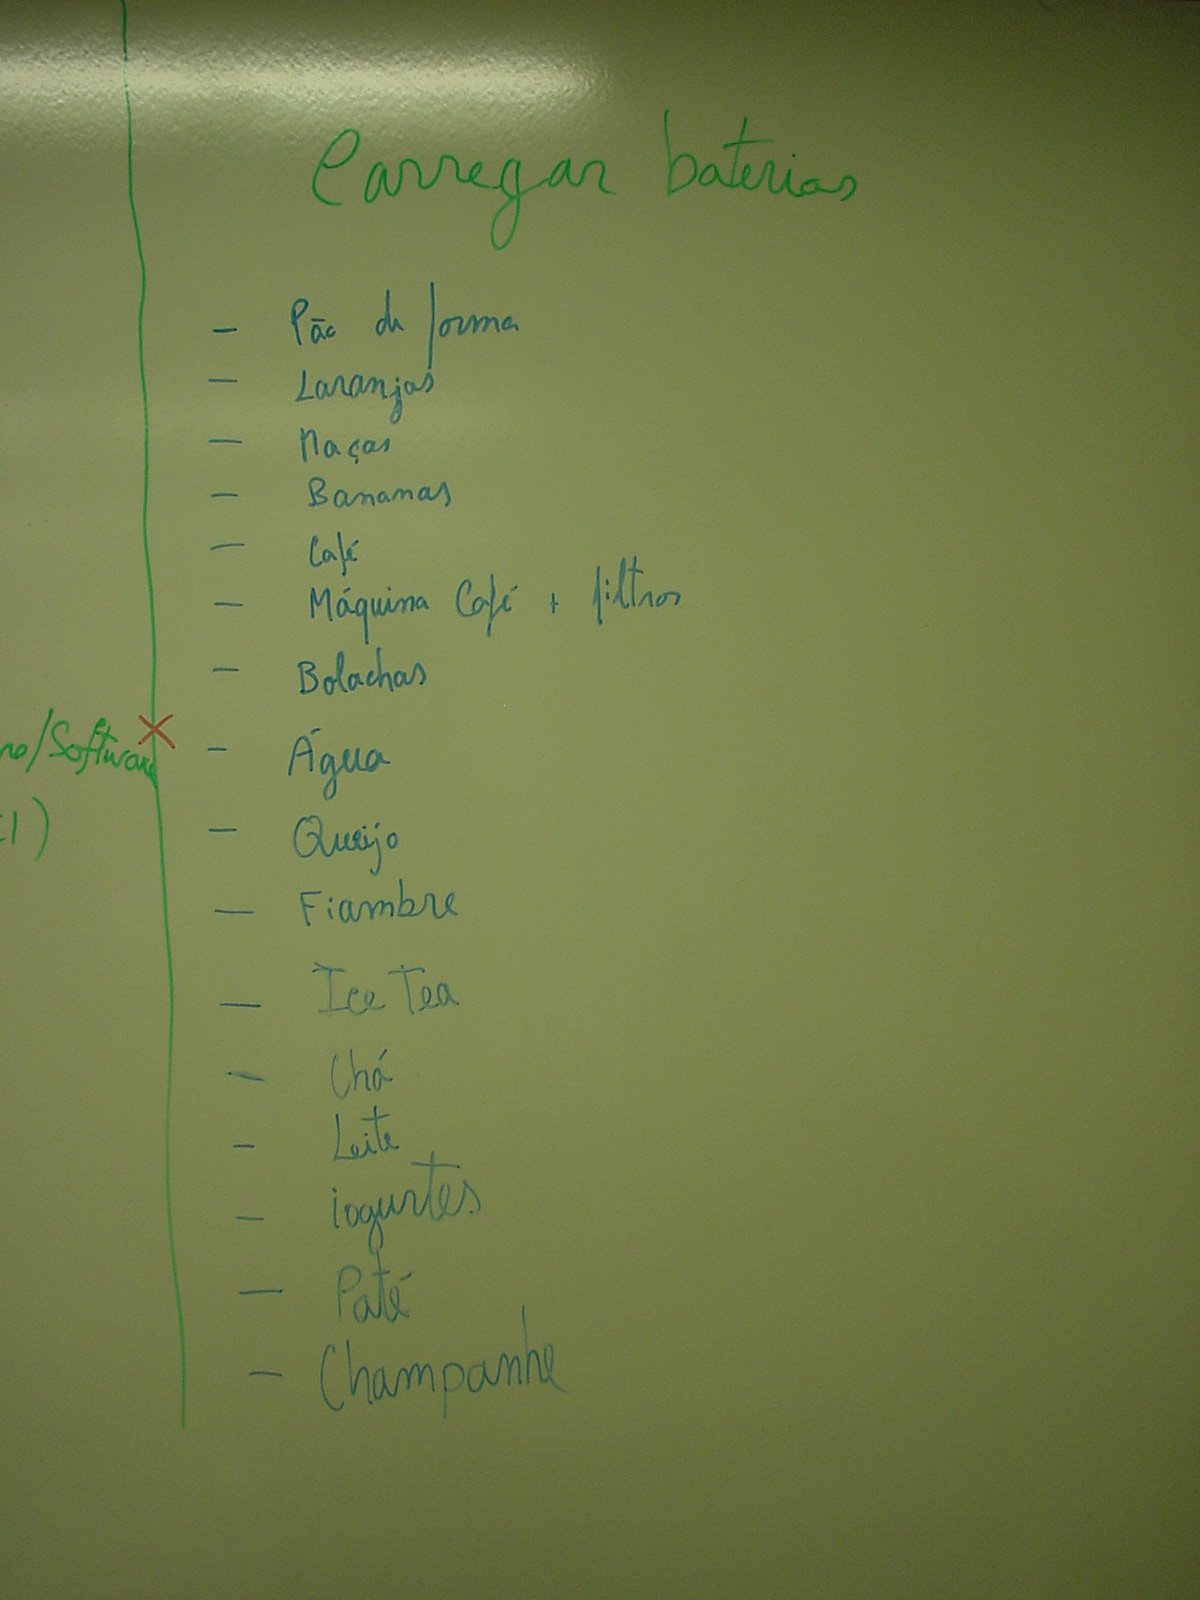 Carregar baterias
- Pão de forma
- Laranjas
- Maças
- Bananas
- Café
- Máquina Café + filtros
- Bolachas
/Software
- Água
- Queijo
- Fiambre
- Ice Tea
- Chá
- Leite
- iogurtes
- Paté
- Champanhe